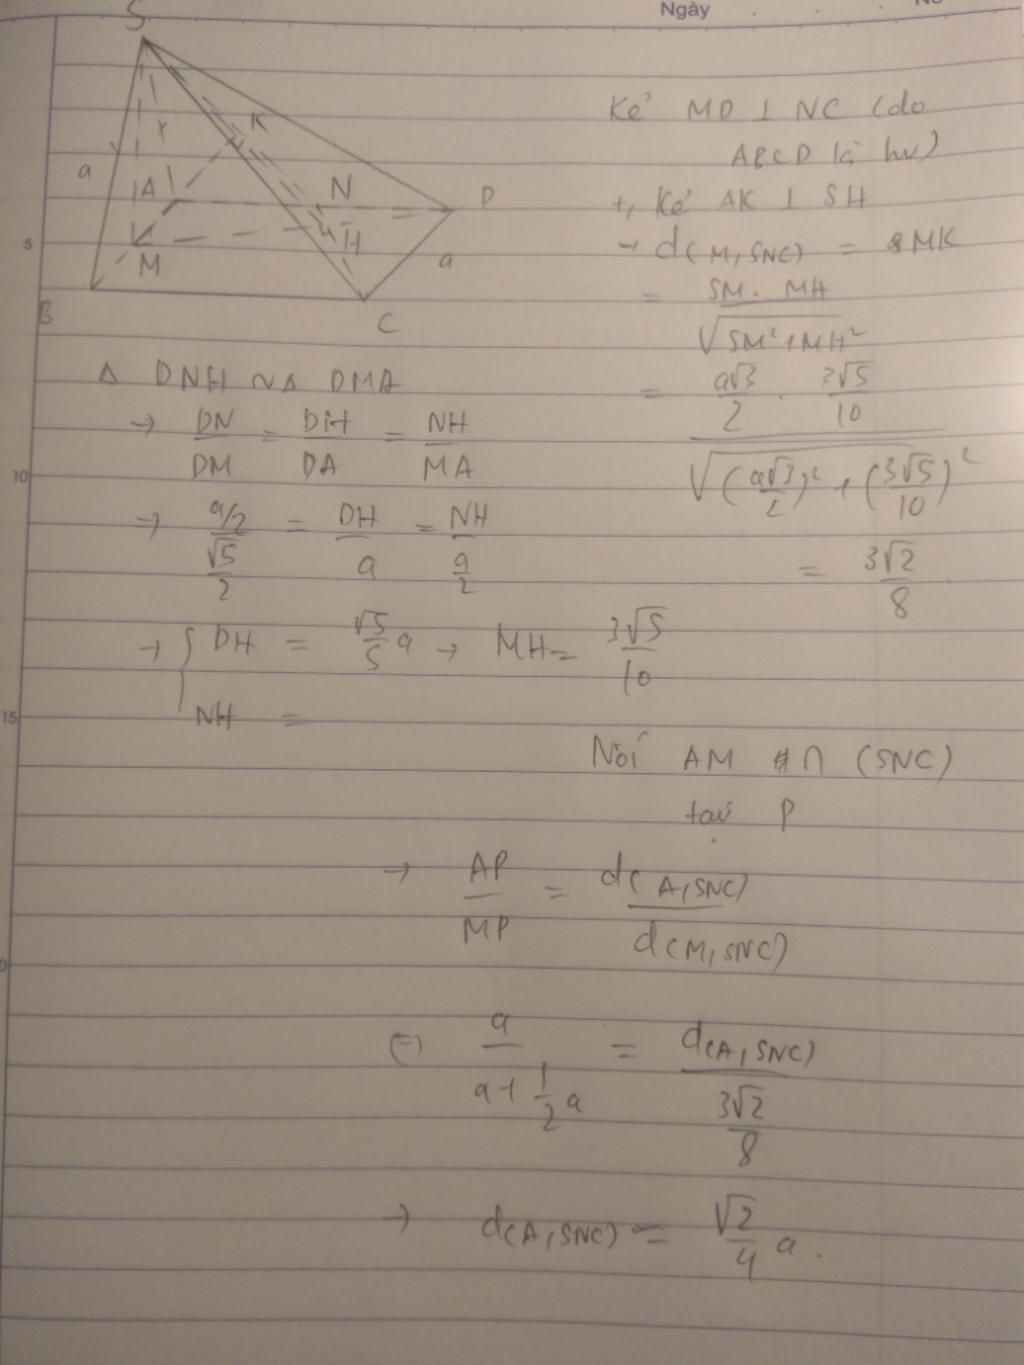 Ngày
No
S
a
K
A
N
D
M
H
a
B
C
5
10
15
Kẻ MD ⊥ NC (do
ABCD là hv)
+, Kẻ AK ⊥ SH
→ d(M,SNC) = MK
= SM. MH / √SM²+MH²
= a√3/2 . 3√5/10 / √(a√3/2)² + (3√5/10)²
= 3√2/8
Δ DNH ~ Δ DMA
→ DN/DM = DH/DA = NH/MA
→ a/2 / √5/2 = DH/a = NH / a/2
→ { DH = √5/5 a → MH = 3√5/10
NH =
Nối AM ∩ (SNC)
tại P
→ AP/MP = d(A,SNC) / d(M,SNC)
(=) a / a+1/2a = d(A,SNC) / 3√2/8
→ d(A,SNC) = √2/4 a.